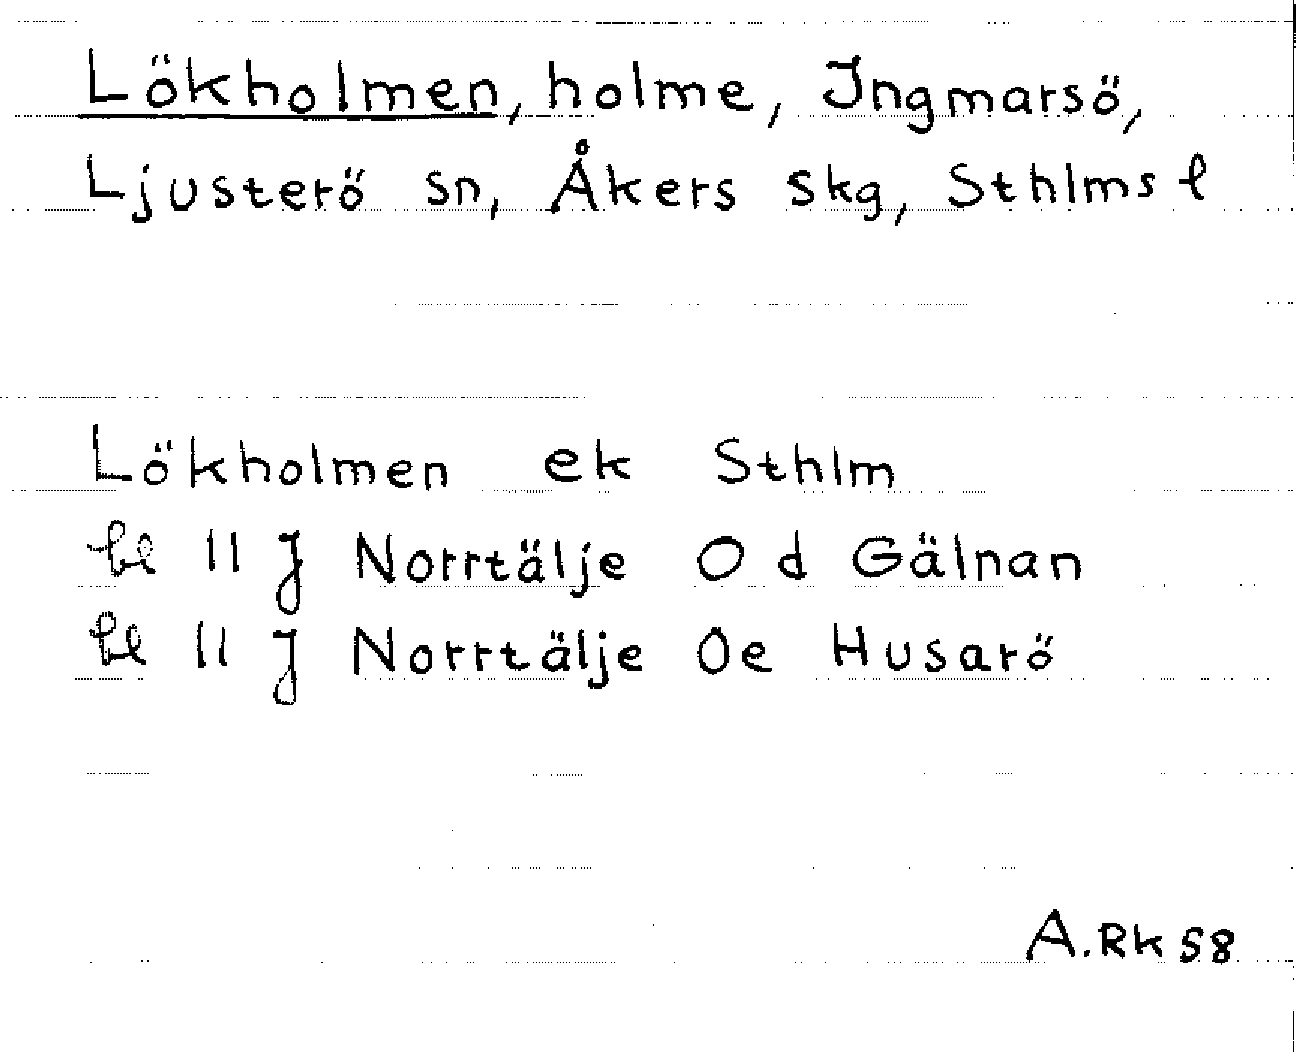 Lökholmen, holme, Ingmarsö,
Ljusterö sn, Åkers skg, Sthlms l
Lökholmen ek Sthlm
bl 11 J Norrtälje O d Gälnan
bl 11 J Norrtälje Oe Husarö
A. Rk 58